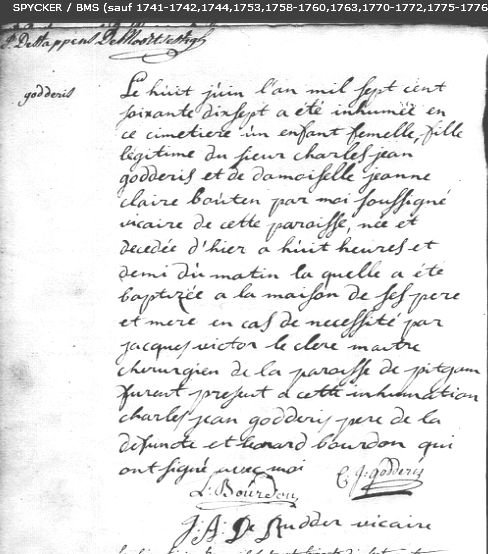 SPYCKER / BMS (sauf 1741-1742,1744,1753,1758-1760,1763,1770-1772,1775-1776
godderis
Le huit juin l'an mil sept cent
soixante dixsept a été inhumée en
ce cimetiere un enfant femelle, fille
légitime du sieur charles jean
godderis et de damoiselle jeanne
claire bouten par moi soussigné
vicaire de cette paroisse, née et
decedée d'hier a huit heures et
demi du matin la quelle a été
baptizée a la maison de ses pere
et mere en cas de necessité par
jacques victor le clerc maitre
chirurgien de la paroisse de pitgam
furent present a cette inhumation
charles jean godderis pere de la
defuncte et leonard bourdon qui
ont signé avec moi
C. J. godderis
L. Bourdon
J. A. De Rudder vicaire